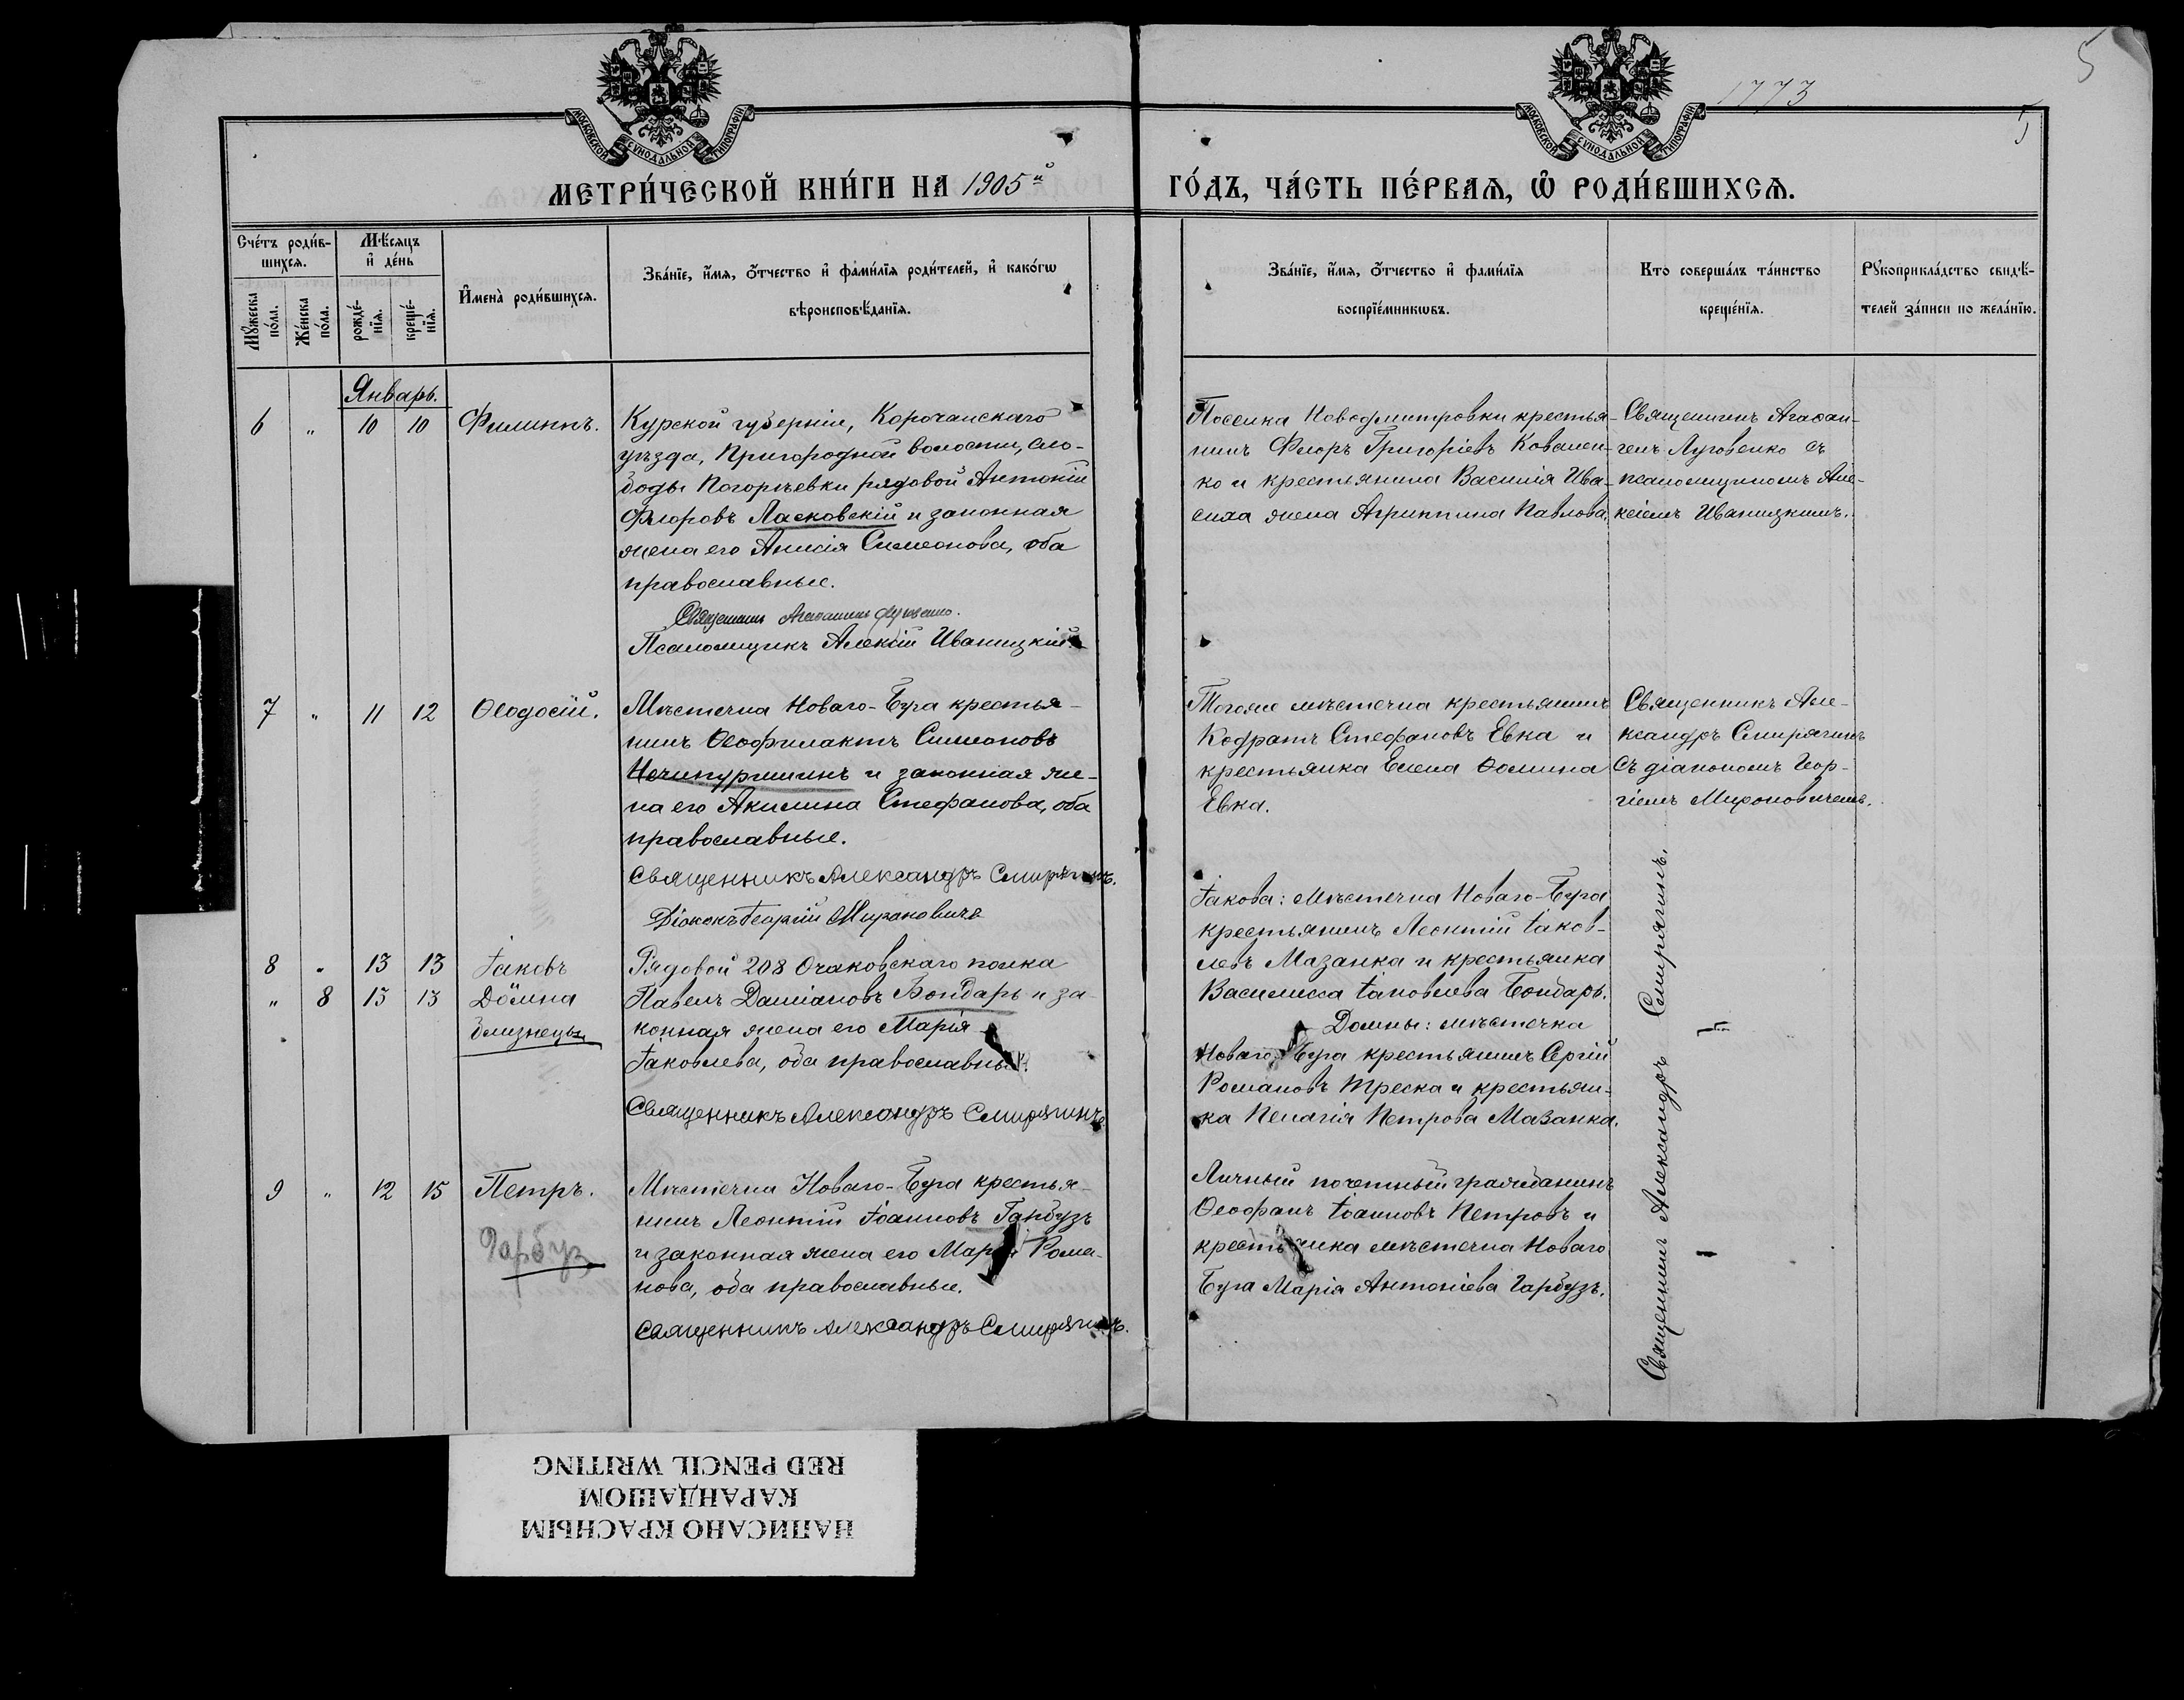 1773
5
5
МОСКОВСКОЙ СУНОДАЛЬНОЙ ТИПОГРАФІИ
МОСКОВСКОЙ СУНОДАЛЬНОЙ ТИПОГРАФІИ
МЕТРИ́ЧЕСКОЙ КНИ́ГИ НА 1905й
ГО́ДЪ, ЧА́СТЬ ПЕ́РВАѦ, Ѡ РОДИ́ВШИХСѦ.
Сче́тъ роди́в-
шихсѧ.
Мѣ́сяцъ
и де́нь
Мꙋ́жеска
по́ла.
Же́нска
по́ла.
рожде́-
нїѧ.
креще́-
нїѧ.
Имена̀ роди́вшихсѧ.
Зва́нїе, и́мѧ, о́тчество и фами́лїѧ роди́телей, и како́гѡ
вѣроисповѣ́данїѧ.
Зва́нїе, и́мѧ, о́тчество и фами́лїѧ
воспрїе́мникѡвъ.
Кто̀ соверша́лъ та́инство
креще́нїѧ.
Рꙋкоприкла́дство свидѣ́-
телей за́писи по жела́нїю.
Январь.
6 " 10 10 Филиппъ.
Курской губерніи, Корочанскаго
уѣзда, Пригородной волости, сло-
боды Погорѣевки рядовой Антоній
Флоровъ Ласковскій и законная
жена его Анисія Симеонова, оба
православные.
Священникъ Агафангелъ Луговенко.
Псаломщикъ Алексій Иваницкій.
Поселка Новодмитровки крестья-
нинъ Флоръ Григоріевъ Ковален-
ко и крестьянина Василія Ива-
сиха жена Агриппина Павлова.
Священникъ Агафан-
гелъ Луговенко съ
псаломщикомъ Але-
ксіемъ Иваницкимъ.
7 " 11 12 Ѳеодосій.
Мѣстечка Новаго-Буга крестья-
нинъ Ѳеофилактъ Симеоновъ
Нечипуришинъ и законная же-
на его Акилина Стефанова, оба
православные.
Священникъ Александръ Смирягинъ.
Діаконъ Георгій Мироновичъ
Тогоже мѣстечка крестьянинъ
Кодратъ Стефановъ Евка и
крестьянка Елена Ѳомина
Евка.
Священникъ Але-
ксандръ Смирягинъ
съ діакономъ Геор-
гіемъ Мироновичемъ.
8 " 13 13 Іаковъ
" 8 13 13 Домна
близнецы
Рядовой 208 Очаковскаго полка
Павелъ Даміановъ Бондарь и за-
конная жена его Марія
Іаковлева, оба православные.
Священникъ Александръ Смирягинъ
Іакова: мѣстечка Новаго-Буга
крестьянинъ Леонтій Іаков-
левъ Мазанка и крестьянка
Василисса Іаковлева Бондарь.
Домны: мѣстечка
Новаго-Буга крестьянинъ Сергій
Романовъ Треска и крестьян-
ка Пелагія Петрова Мазанка.
Священникъ Александръ Смирягинъ.
9 " 12 15 Петръ.
Гарбуз
Мѣстечка Новаго-Буга крестья-
нинъ Леонтій Іоанновъ Гарбузъ
и законная жена его Марія Рома-
нова, оба православные.
Священникъ Александръ Смирягинъ.
Личный почетный гражданинъ
Ѳеофанъ Іоанновъ Петровъ и
крестьянка мѣстечка Новаго
Буга Марія Антоніева Гарбузъ.
НАПИСАНО КРАСНЫМ
КАРАНДАШОМ
RED PENCIL WRITING